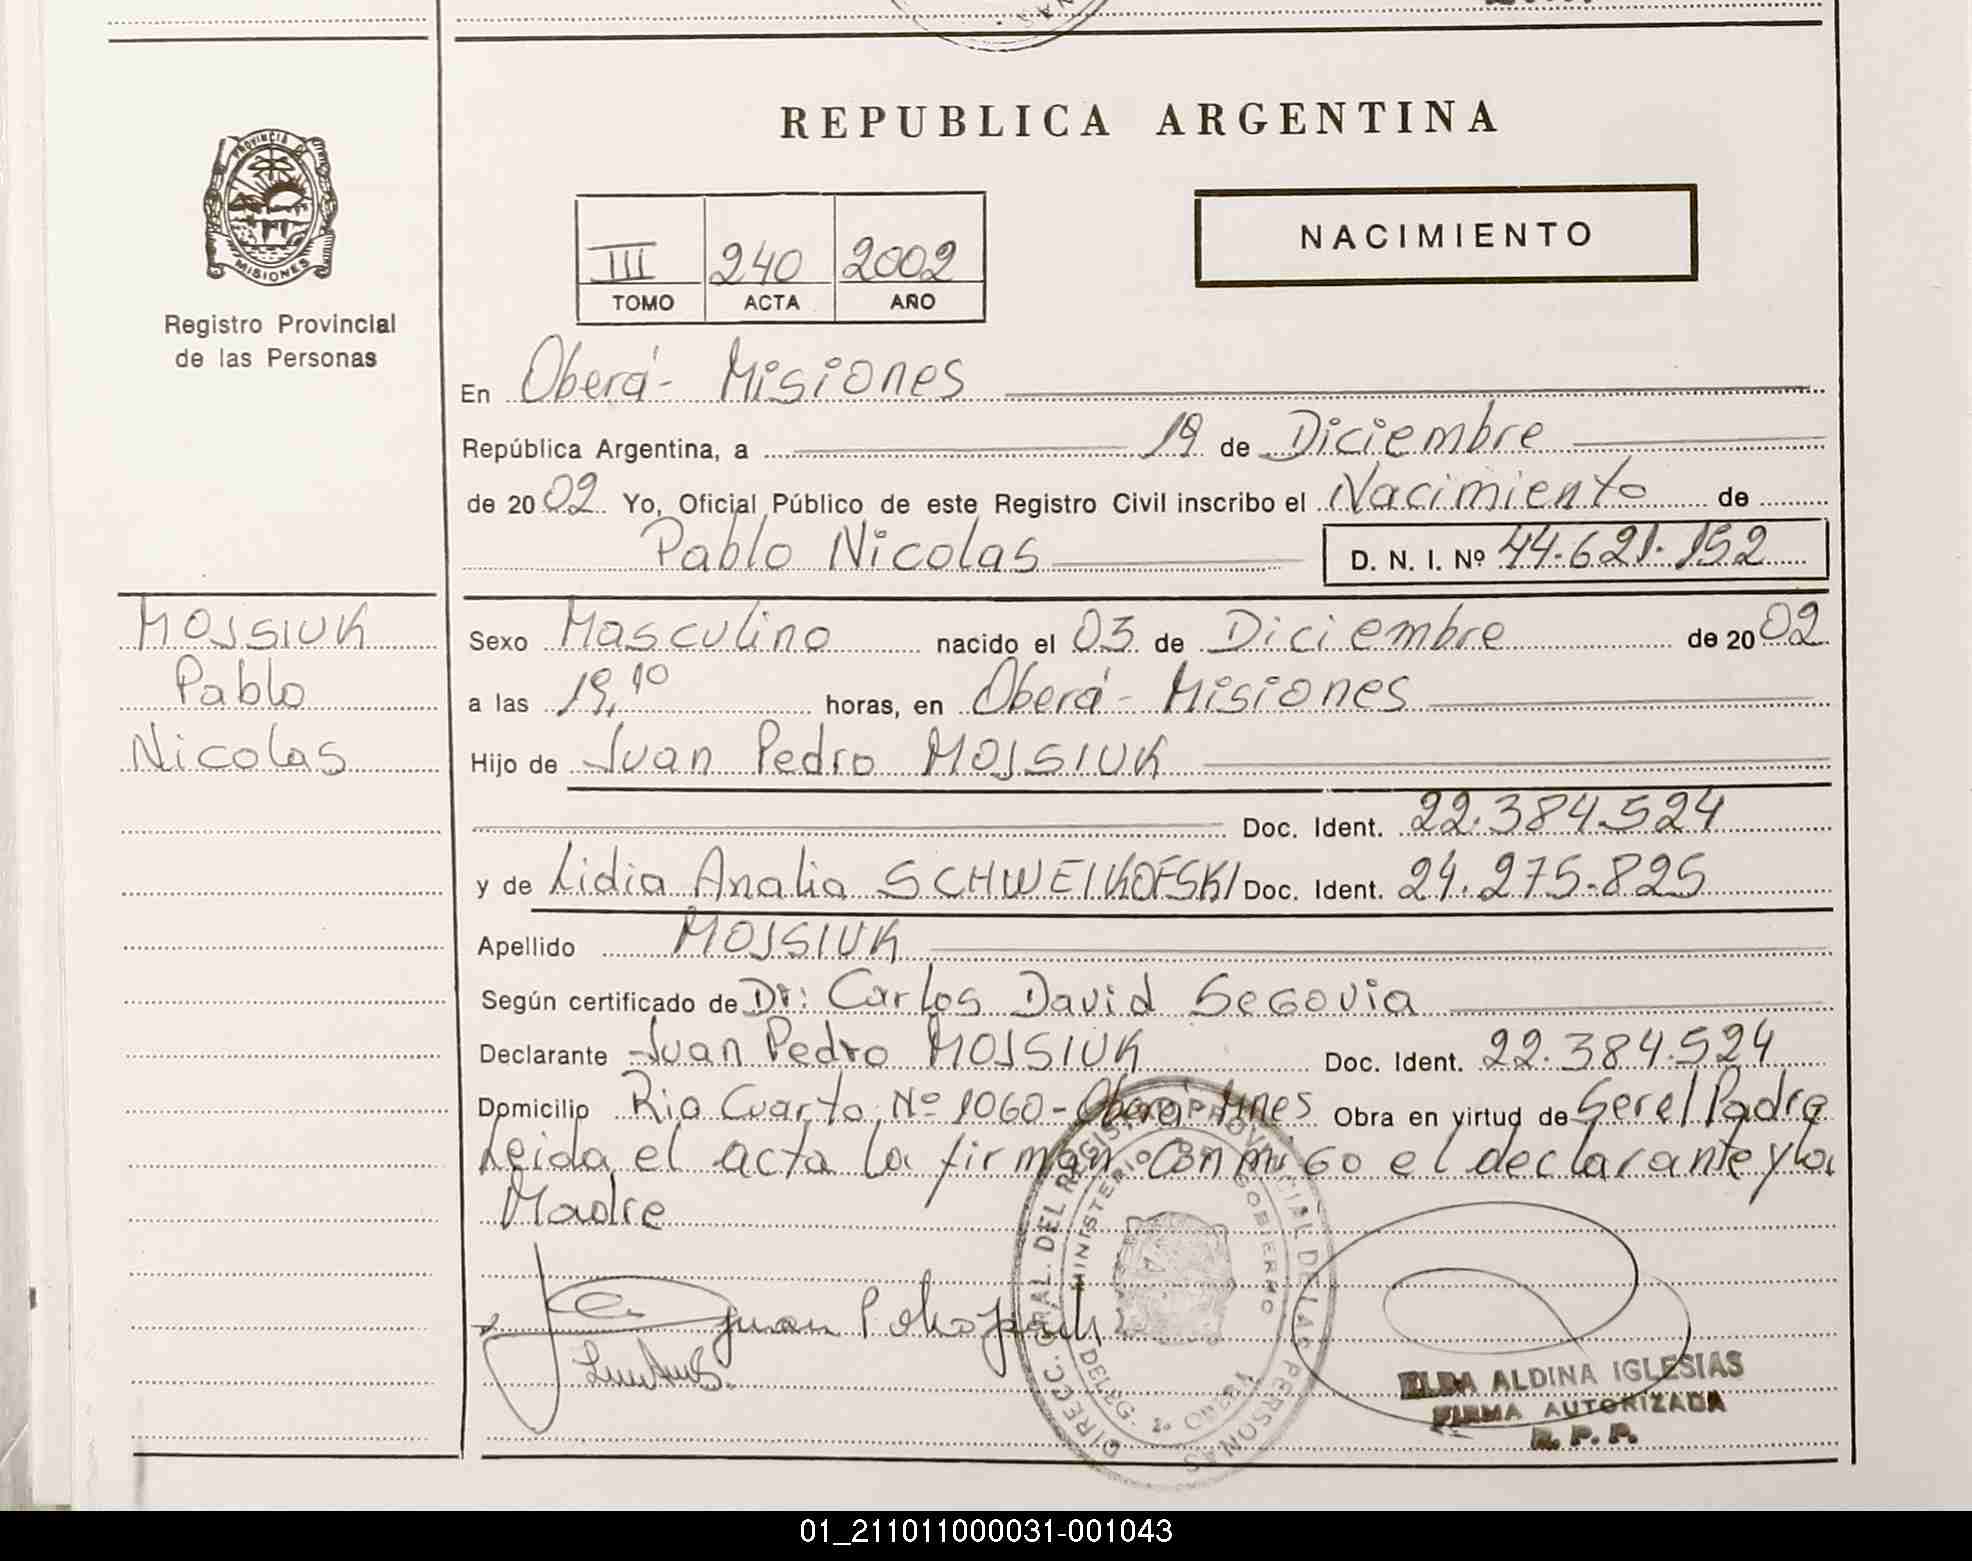 REPUBLICA ARGENTINA
PROVINCIA DE
MISIONES
Registro Provincial
de las Personas
III 240 2002
TOMO ACTA AÑO
NACIMIENTO
En Oberá - Misiones
República Argentina, a 19 de Diciembre
de 20 02 Yo, Oficial Público de este Registro Civil inscribo el Nacimiento de
Pablo Nicolas D. N. I. Nº 44.621.152
MOJSIUK
Pablo
Nicolas
Sexo Masculino nacido el 03 de Diciembre de 20 02
a las 19,10 horas, en Oberá - Misiones
Hijo de Juan Pedro MOJSIUK
Doc. Ident. 22.384.524
y de Lidia Analia SCHWEIKOFSKI Doc. Ident. 24.275.825
Apellido MOJSIUK
Según certificado de Dr: Carlos David Segovia
Declarante Juan Pedro MOJSIUK Doc. Ident. 22.384.524
Domicilio Rio Cuarto Nº 1060 - Oberá Mnes Obra en virtud de Ser el Padre
Leida el acta la firman conmigo el declarante y la
Madre
DIRECC. GRAL. DEL REGISTRO PROVINCIAL DE LAS PERSONAS
MINISTERIO DE GOBIERNO
DELEG. 2a OBERA
Juan
ELBA ALDINA IGLESIAS
FIRMA AUTORIZADA
R. P. P.
01_211011000031-001043